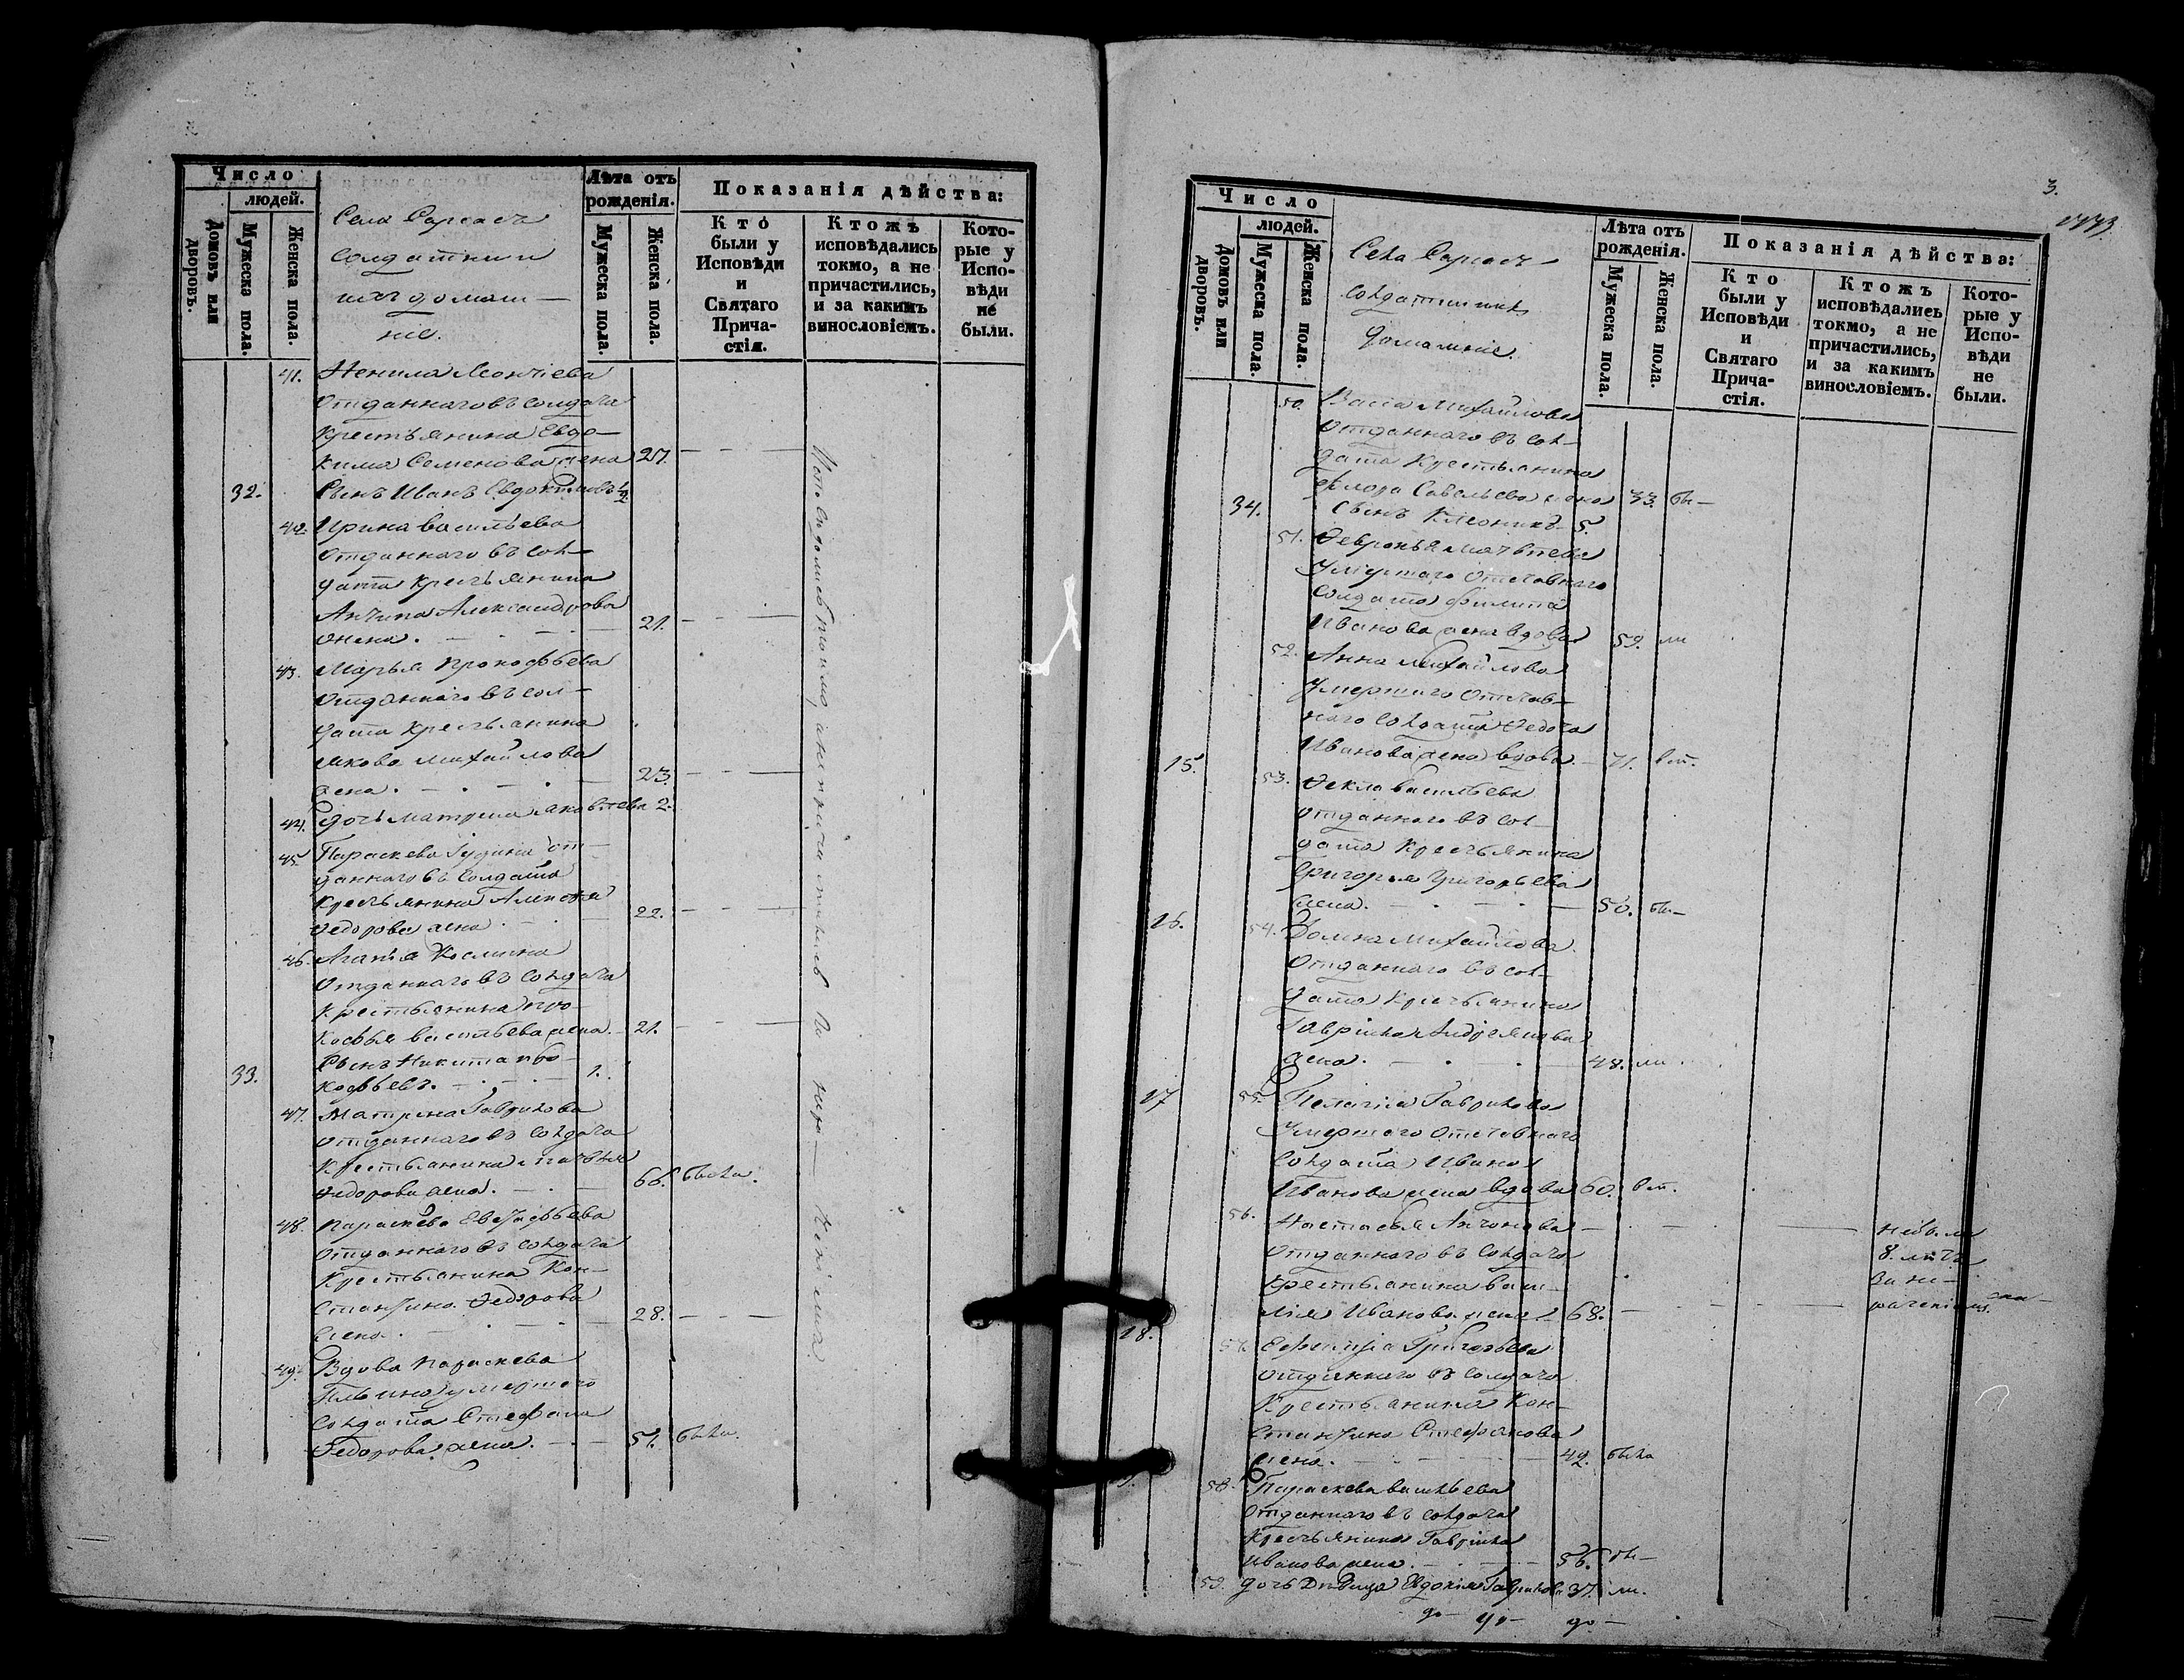 Число
людей.
Домовъ или дворовъ.
Мужеска пола.
Женска пола.
Села
Солдатки и
ихъ домаш–
ніе.
Лѣта отъ
рожденія.
Мужеска пола.
Женска пола.
Показанія дѣйства:
Кто
были у
Исповѣди
и
Святаго
Прича-
стія.
Ктожъ
исповѣдались
токмо, а не
причастились,
и за какимъ
винословіемъ.
Кото-
рые у
Испо-
вѣди
не
были.
41. Ненила Леонтіева
отданнаго въ солдата
крестьянина Евдо–
кима Семенова жена 27.
32. Сынъ Иванъ Евдокимовъ 1/2
42. Ирина Васильева
отданнаго въ сол–
дата крестьянина
Антипа Александрова
жена. 21.
43. Марья Прокофьева
отданнаго въ сол–
дата крестьянина
Якова Михайлова
жена. 23.
44. дочь Матрена Яковлева 2.
45. Параскева от–
даннаго въ солдата
крестьянина Алексѣя
Федорова жена. 22.
46. Агафья Космина
отданнаго въ солдата
крестьянина Про–
кофья Васильева жена. 21.
33. Сынъ Никита Про–
кофьевъ. 1.
47. Матрена Гаврилова
отданнаго въ солдата
крестьянина Матвѣя
Федорова жена. 66. была.
48. Параскева Евстафьева
отданнаго въ солдата
крестьянина Кон–
стантина Федорова
жена. 28.
49. Вдова Параскева
Ильина умершаго
солдата Стефана
Федорова жена. 51. была.
3.
Число
людей.
Домовъ или дворовъ.
Мужеска пола.
Женска пола.
Села
солдатки и ихъ
домашніе.
Лѣта отъ
рожденія.
Мужеска пола.
Женска пола.
Показанія дѣйства:
Кто
были у
Исповѣди
и
Святаго
Прича-
стія.
Ктожъ
исповѣдались
токмо, а не
причастились,
и за какимъ
винословіемъ.
Кото-
рые у
Испо-
вѣди
не
были.
50. Васса Михайлова
отданнаго въ сол–
дата крестьянина
Флора Савельева жена 33. бы–
34. Сынъ 5.
51. Февронья Матвѣева
умершаго отставнаго
солдата Филипа
Иванова жена вдова 59. ли
52. Анна Михайлова
умершаго отстав–
наго солдата Федота
Иванова жена вдова. 71.
15. 53. Фекла Васильева
отданнаго въ сол–
дата крестьянина
Григорья Григорьева
жена. 50. бы–
16. 54. Домна Михайлова
отданнаго въ сол–
дата крестьянина
Гаврилы Андреянова
жена. 48. ли
17 55. Пелагія Гаврилова
умершаго отставнаго
солдата Ивана
Иванова жена вдова 60.
56. Настасья Антонова не была
отданнаго въ солдата 8. лѣтъ
крестьянина Васи– за не–
лія Иванова жена 68.
18. 57. Ефимія Григорьева
отданнаго въ солдата
крестьянина Кон–
стантина Стефанова
жена. 42. была
58. Параскева Васильева
отданнаго въ солдата
крестьянина Гаврила
Иванова жена. 56. бы–
59. дочь Дѣвица Евдокія Гаврилова 37. ли.